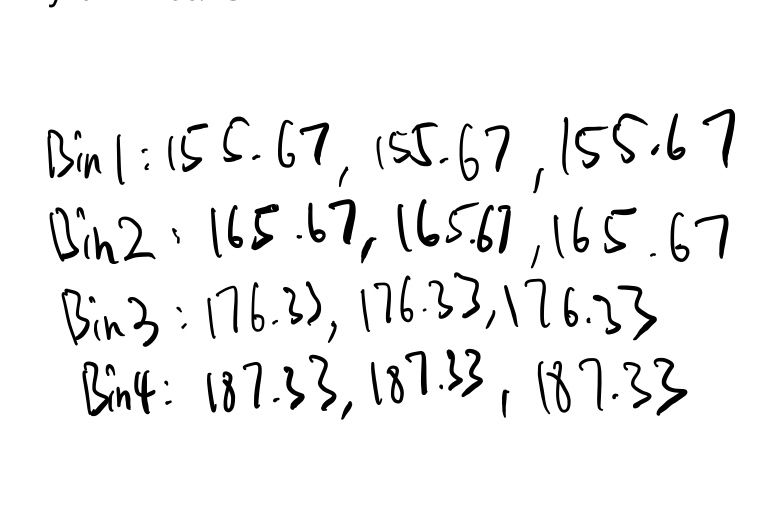 Bin1: 155.67, 155.67, 155.67
Bin2: 165.67, 165.67, 165.67
Bin3: 176.33, 176.33, 176.33
Bin4: 187.33, 187.33, 187.33